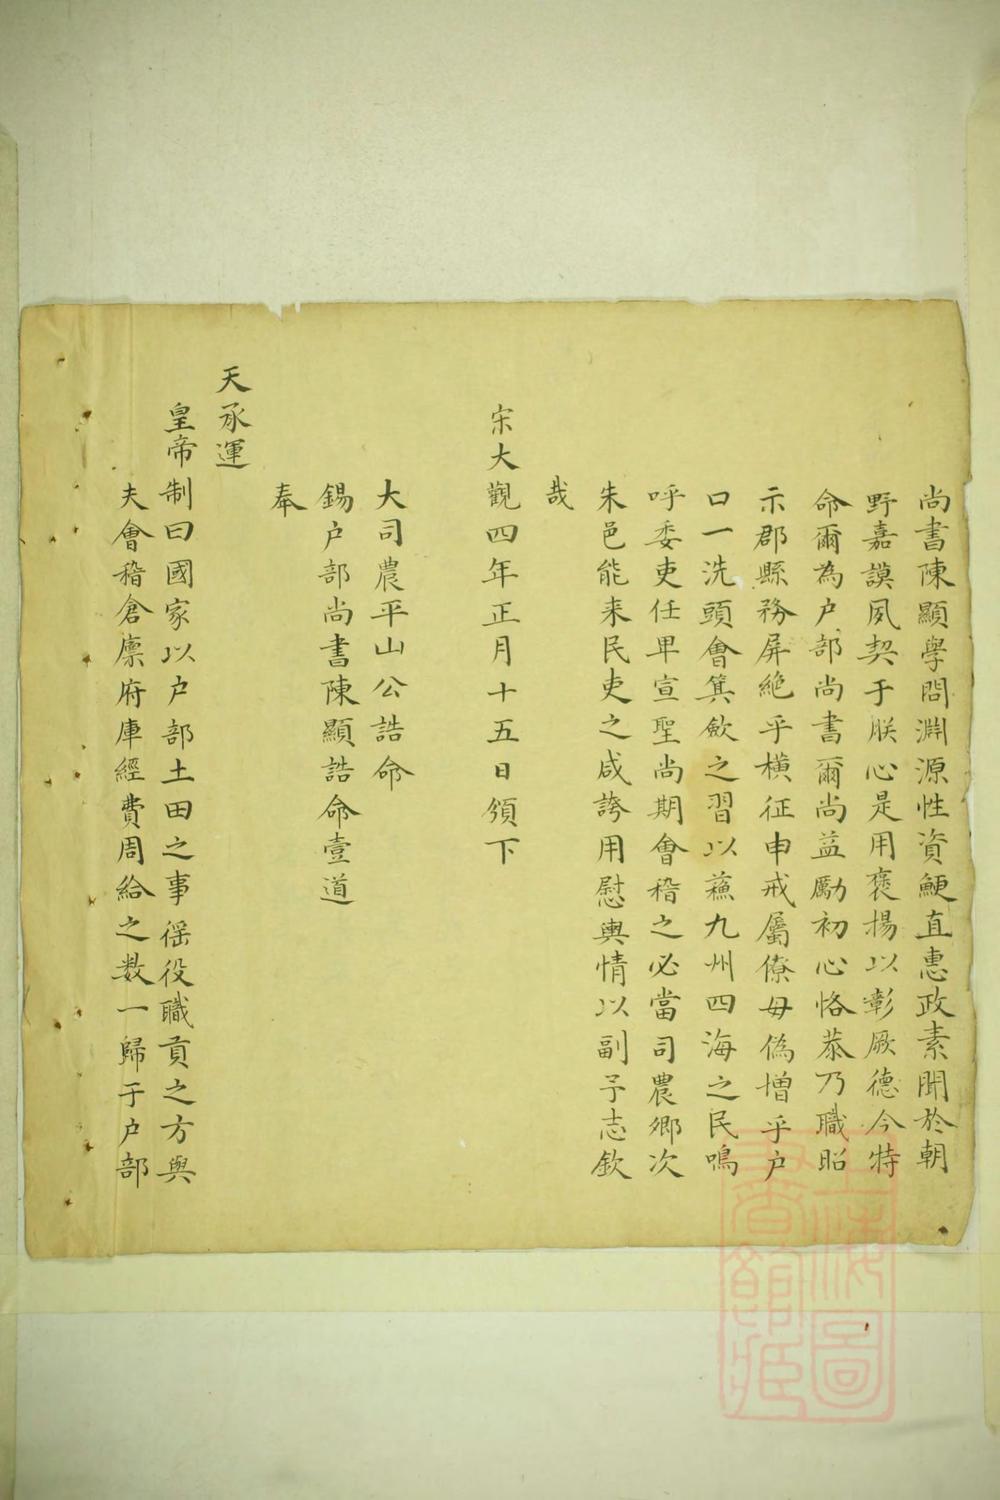 尚書陳顯學問淵源性資鯁直惠政素聞於朝
野嘉謨夙契于朕心是用褒揚以彰厥德今特
命爾為户部尚書爾尚益勵初心恪恭乃職昭
示郡縣務屏絶乎横征申戒屬僚毋偽增乎户
口一洗頭會箕歛之習以蘓九州四海之民鳴
呼委吏任卑宣聖尚期會稽之必當司農鄉次
朱邑能来民吏之咸誇用慰輿情以副予志欽
哉
宋大觀四年正月十五日頒下
大司農平山公誥命
錫户部尚書陳顯誥命壹道
奉
天承運
皇帝制曰國家以户部土田之事徭役職貢之方與
夫會稽倉廪府庫經費周給之数一歸于户部
上海圖
書館藏